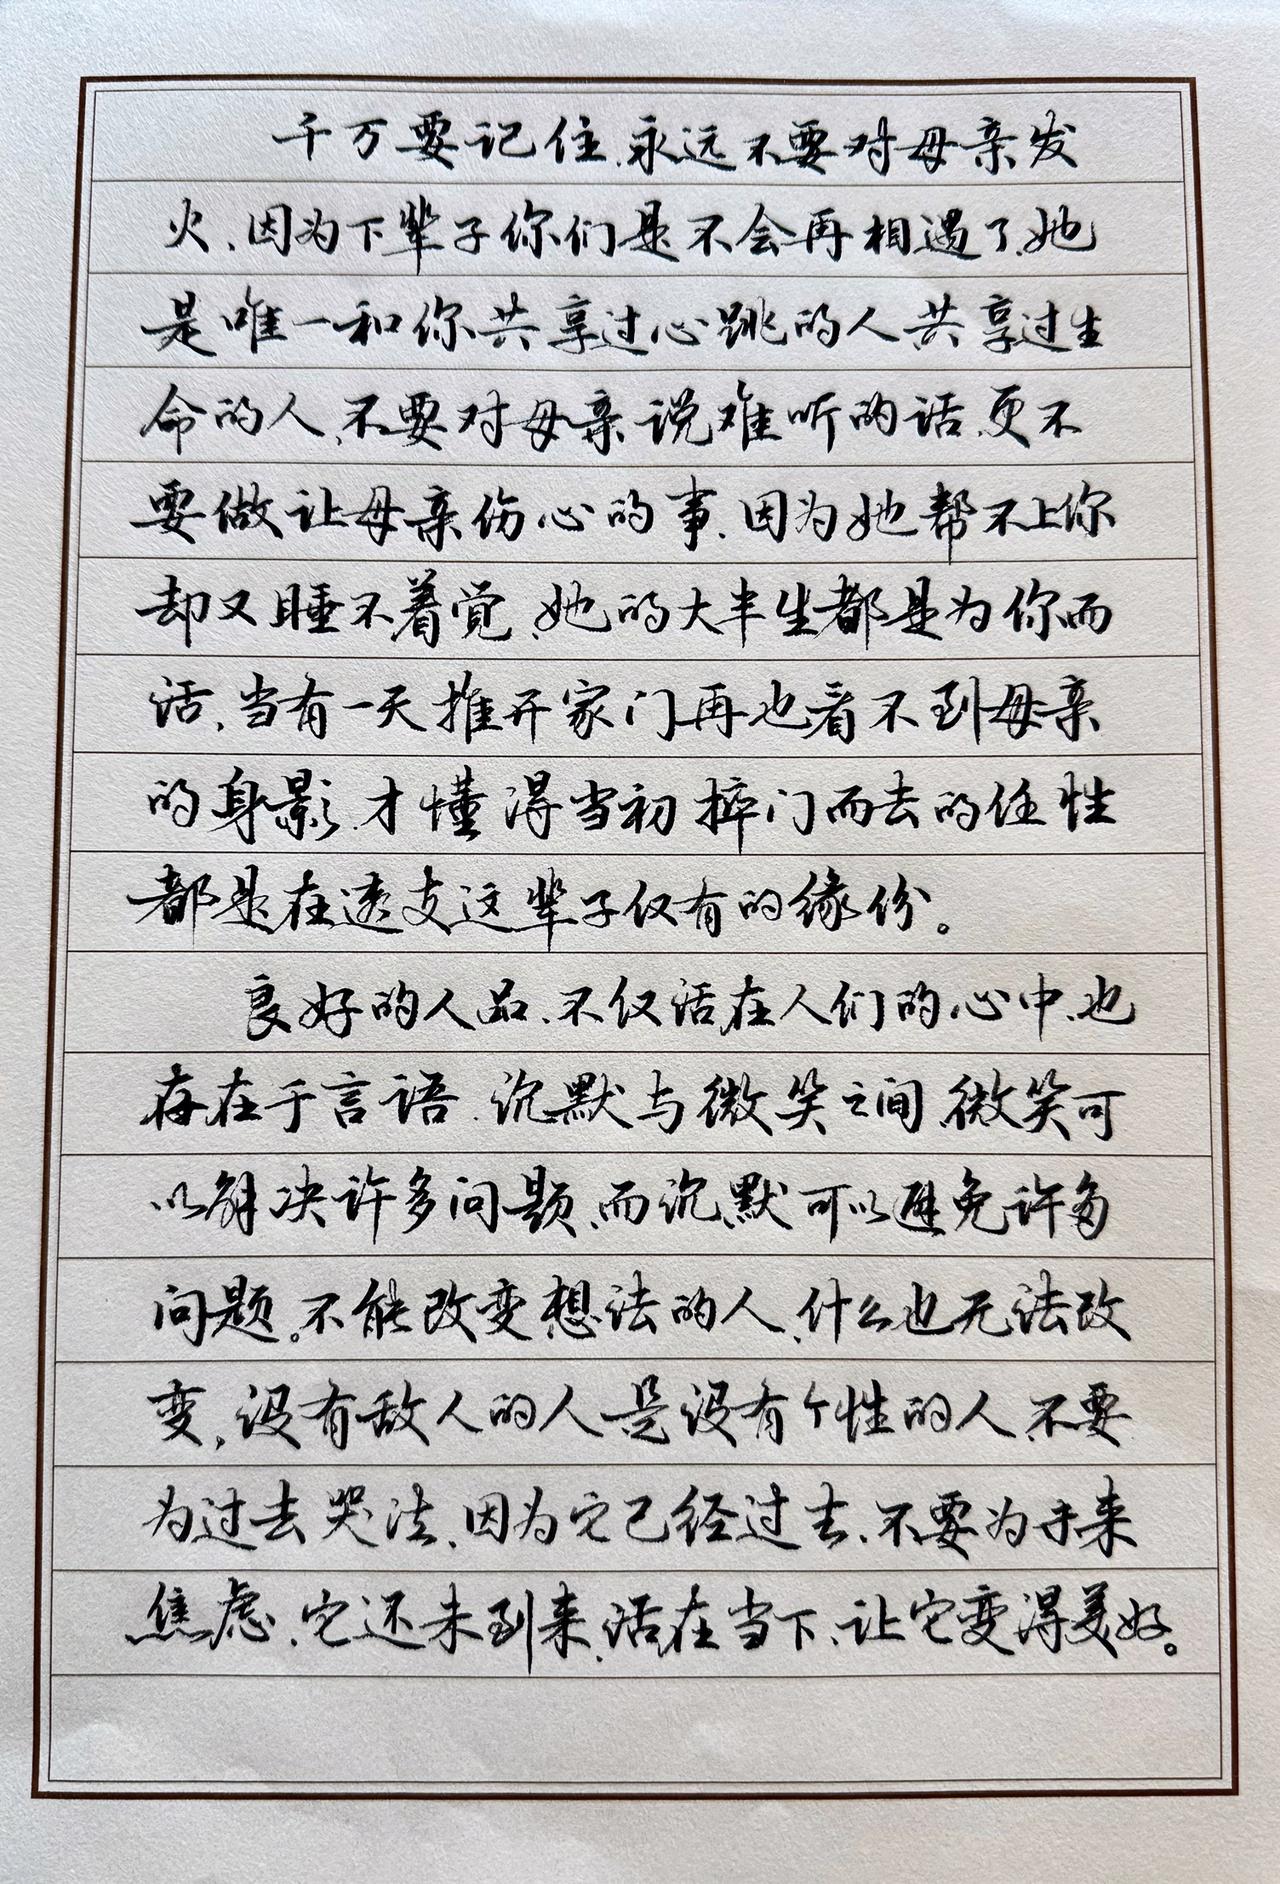 千万要记住、永远不要对母亲发
火、因为下辈子你们是不会再相遇了、她
是唯一和你共享过心跳的人共享过生
命的人、不要对母亲说难听的话、更不
要做让母亲伤心的事、因为她帮不上你
却又睡不着觉、她的大半生都是为你而
活、当有一天推开家门再也看不到母亲
的身影、才懂得当初摔门而去的任性
都是在透支这辈子仅有的缘份。
良好的人品、不仅活在人们的心中、也
存在于言语、沉默与微笑之间、微笑可
以解决许多问题、而沉默可以避免许多
问题。不能改变想法的人、什么也无法改
变，没有敌人的人是没有个性的人、不要
为过去哭泣、因为它已经过去、不要为未来
焦虑、它还未到来、活在当下、让它变得美好。